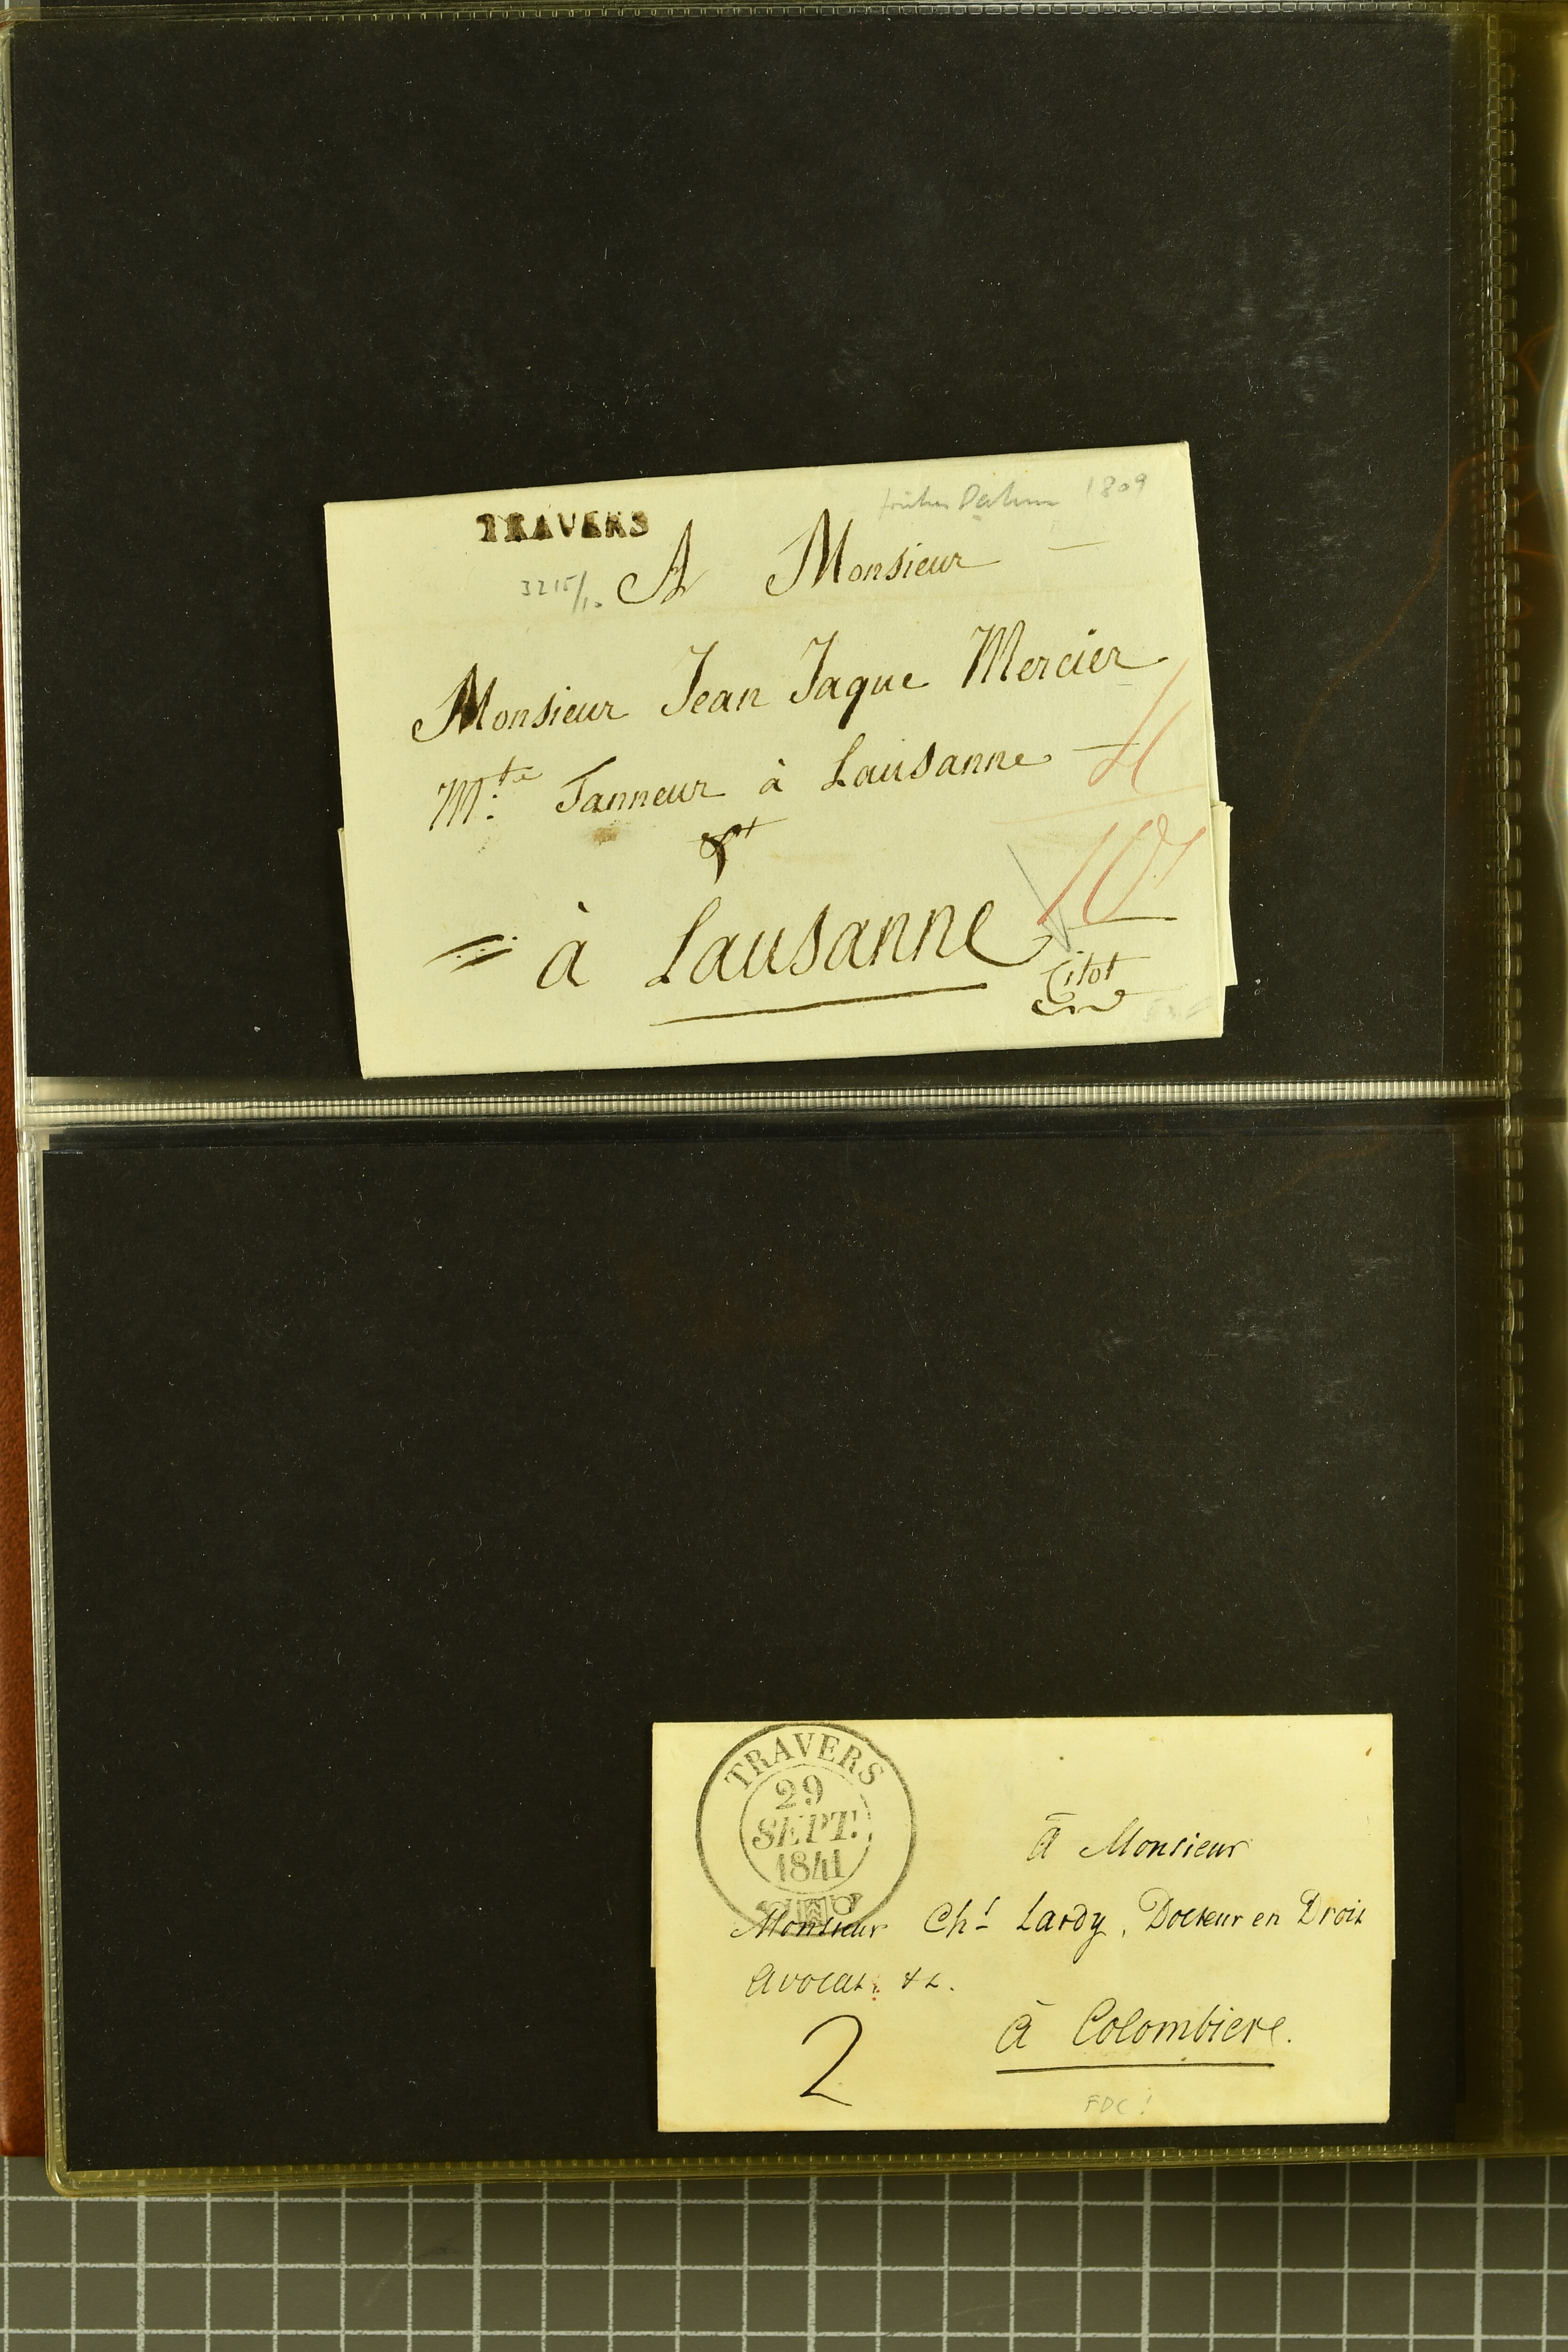 TRAVERS
1809
3215/10
A Monsieur
Monsieur Jean Jaque Mercier
M.te Tanneur à Lausanne
4
10
à Lausanne
Citot
TRAVERS
29
SEPT.
1841
à Monsieur
Monsieur Chs Lardy, Docteur en Droit
Avocat, &c.
2
à Colombiere.
FDC!